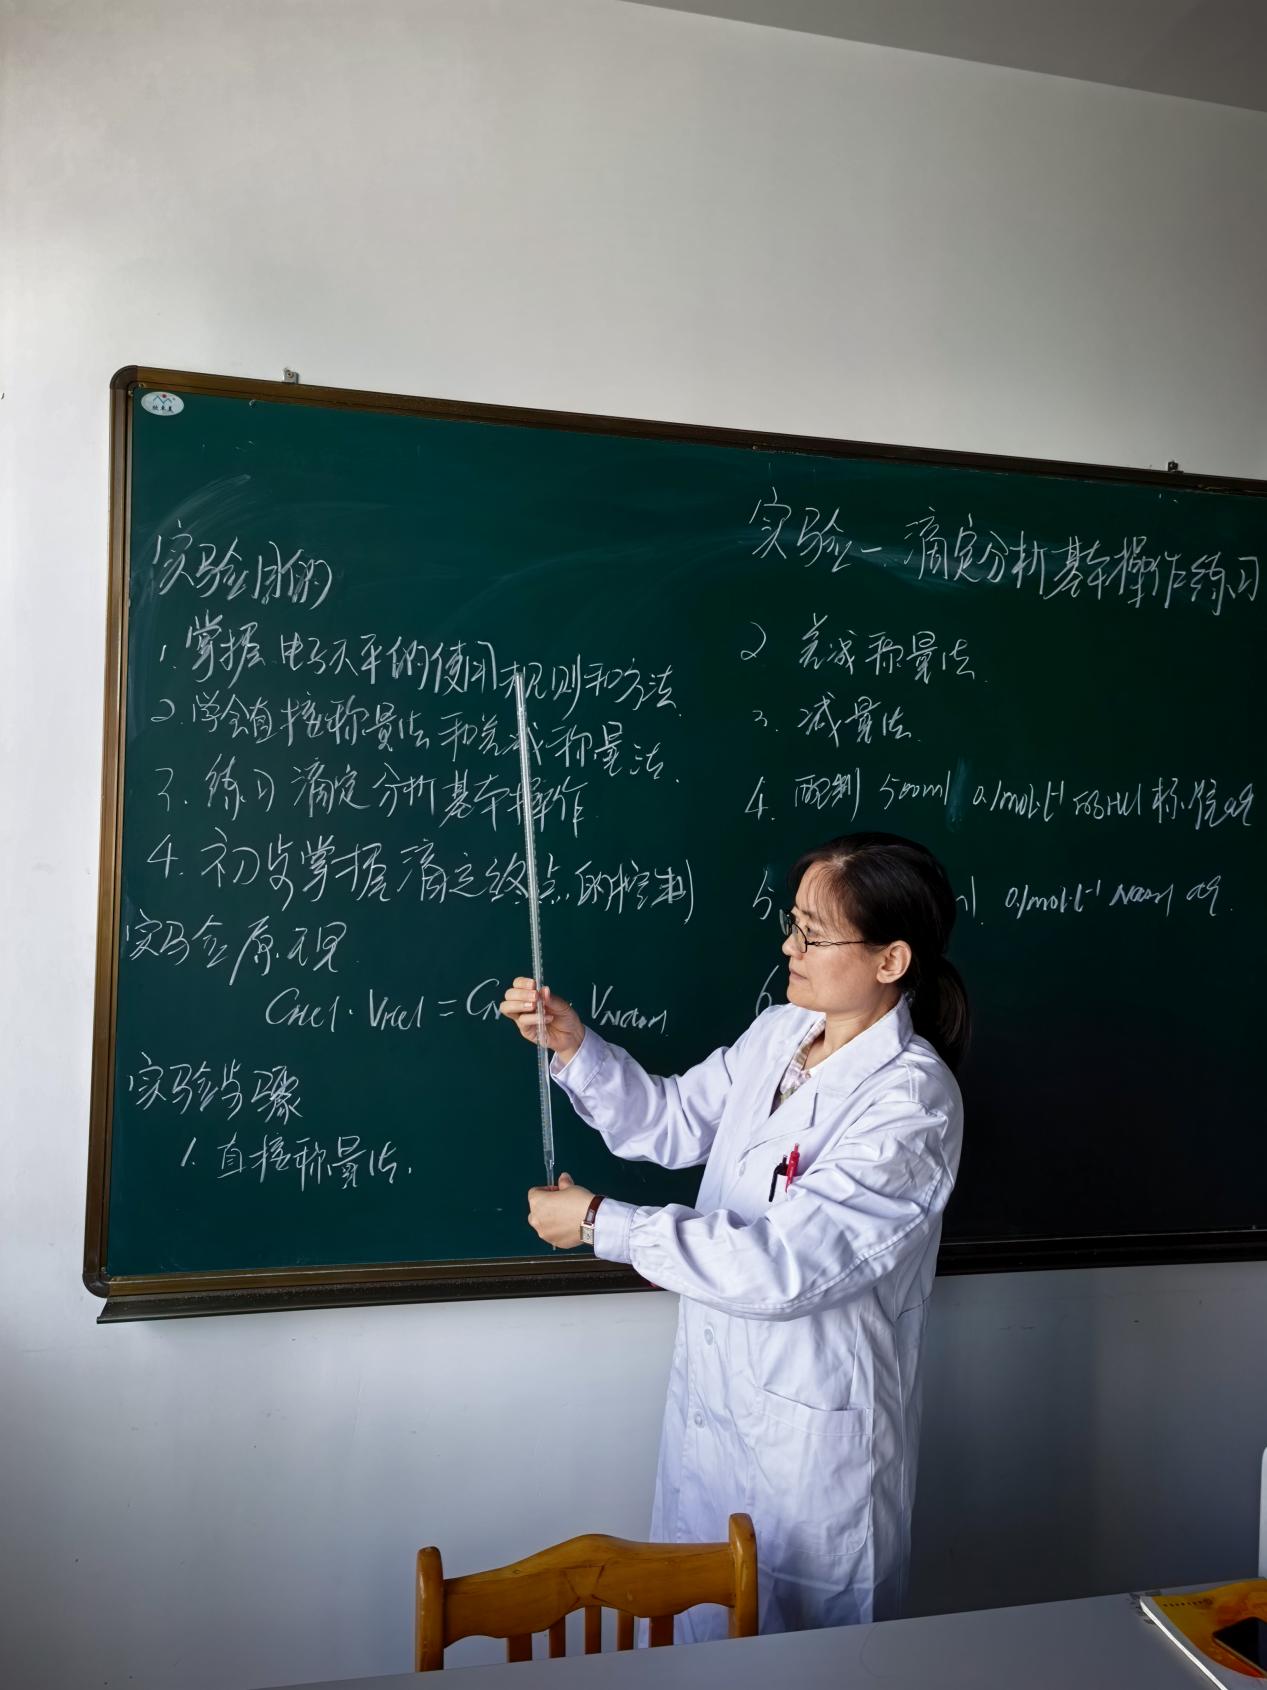 实验目的
1. 掌握电子天平的使用规则和方法.
2. 学会直接称量法和差减称量法.
3. 练习滴定分析基本操作
4. 初步掌握滴定终点的控制
实验原理
CHCl · VHCl = CN · VNaOH
实验步骤
1. 直接称量法.
实验一 滴定分析基本操作练习
2 差减称量法.
3. 减量法.
4. 配制 500ml 0.1mol·L⁻¹ 的HCl标准aq
5 0.1mol·L⁻¹ NaOH aq.
6